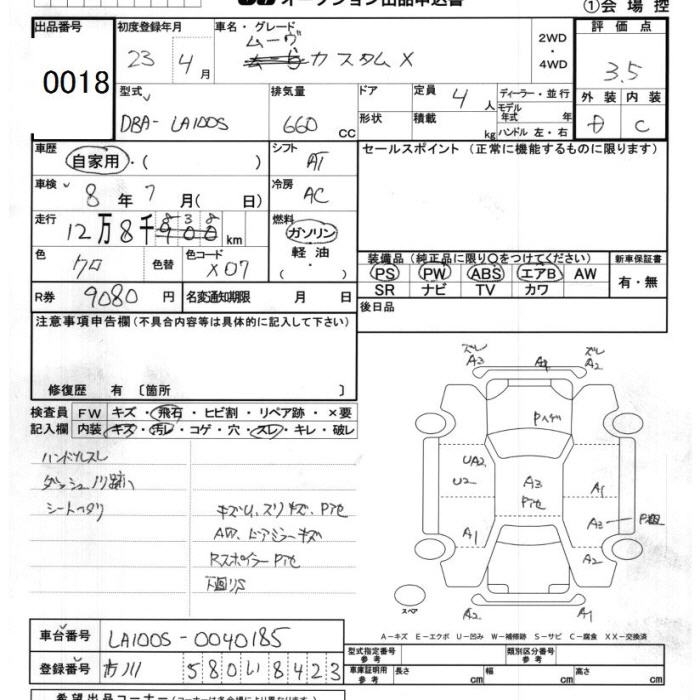 オークション出品申込書
①会場控
出品番号 初度登録年月 車名・グレード 評価点
0018 23 4月 ムーヴ カスタムX 2WD ・ 4WD 3.5
外装 内装
D C
型式 排気量 ドア 定員 ディーラー・並行
DBA-LA100S 660 CC 4人 モデル年式 年
形状 積載 kg ハンドル 左・右
車歴 シフト セールスポイント (正常に機能するものに限ります)
自家用・( ) AT
車検 冷房
8年7月(日) AC
走行 燃料
12万8千 838 km ガソリン
軽油
・( )
色 色替 色コード
クロ X07
装備品 (純正品に限り○をつけてください) 新車保証書
PS PW ABS エアB AW 有・無
SR ナビ TV カワ
R券 9080円 名変通知期限 月 日
後日品
注意事項申告欄 (不具合内容等は具体的に記入して下さい)
修復歴 有 〔箇所 〕
検査員 FW キズ・飛石・ヒビ割・リペア跡・×要
記入欄 内装 キズ・汚レ・コゲ・穴・スレ・キレ・破レ
ハンドルスレ
ダッシュノリ跡
シートヘタリ
キズU、スリキズ、Pアセ
AW、ドアミラーキズ
RスポイラーPアセ
下回りS
ズレ A3 A4 ズレ A2
Pハゲ
UA2
U2
A3
Pアセ
A1
A1
A2
A2
A1
スペア
A-キズ E-エクボ U-凹み W-補修跡 S-サビ C-腐食 XX-交換済
車台番号 LA100S-0040185
登録番号 市川 580 い 8423
型式指定番号 参考 類別区分番号 参考
車庫証明用 参考 長さ cm 幅 cm 高さ cm
希望出品コーナー